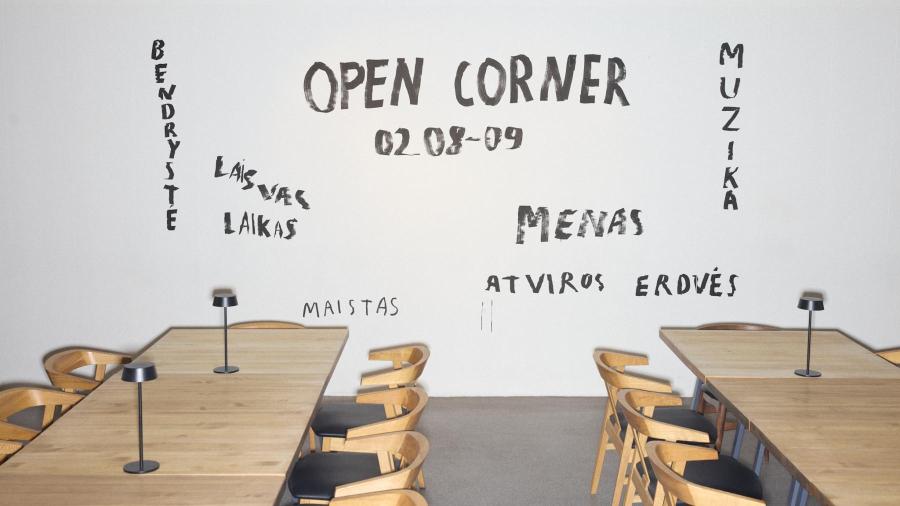 OPEN CORNER
02 08-09
BENDRYSTĖ
LAIS
VAS
LAIKAS
MUZIKA
MENAS
ATVIROS ERDVĖS
MAISTAS